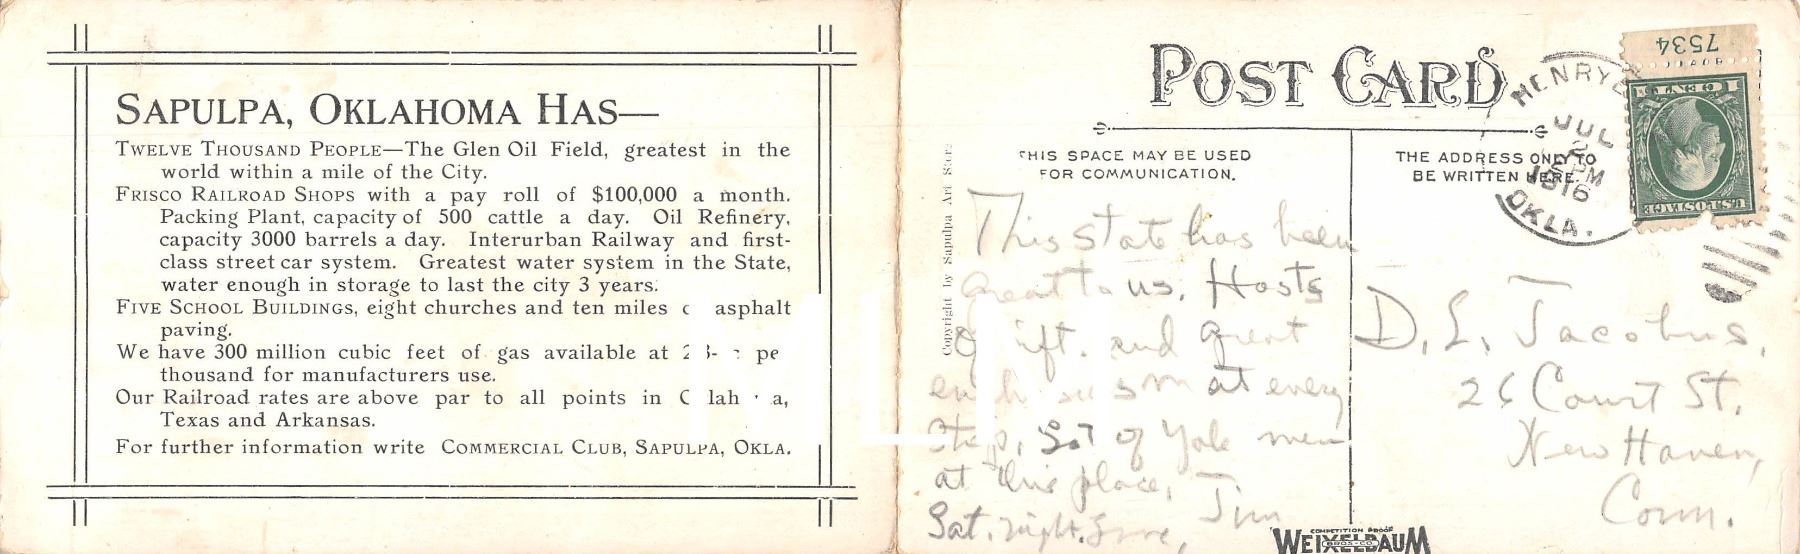 SAPULPA, OKLAHOMA HAS—
TWELVE THOUSAND PEOPLE—The Glen Oil Field, greatest in the
world within a mile of the City.
FRISCO RAILROAD SHOPS with a pay roll of $100,000 a month.
Packing Plant, capacity of 500 cattle a day. Oil Refinery,
capacity 3000 barrels a day. Interurban Railway and first-
class street car system. Greatest water system in the State,
water enough in storage to last the city 3 years.
FIVE SCHOOL BUILDINGS, eight churches and ten miles asphalt
paving.
We have 300 million cubic feet of gas available at
thousand for manufacturers use.
Our Railroad rates are above par to all points in
Texas and Arkansas.
For further information write COMMERCIAL CLUB, SAPULPA, OKLA.
POST CARD
THIS SPACE MAY BE USED
FOR COMMUNICATION.
THE ADDRESS ONLY TO
BE WRITTEN HERE.
Copyright by Sapulpa Art Store
7534
1 CENT 1
U.S. POSTAGE
JUL
2
PM
1916
OKLA.
This state has been
great to us. Hosts
of gift. and great
at every
stop. Lot of Yale men
at this place.
Sat. night. Love, Jim
D. L. Jacobus,
26 Court St.
New Haven,
Conn.
COMPETITION PROOF
WEIXELBAUM
BROS-CO